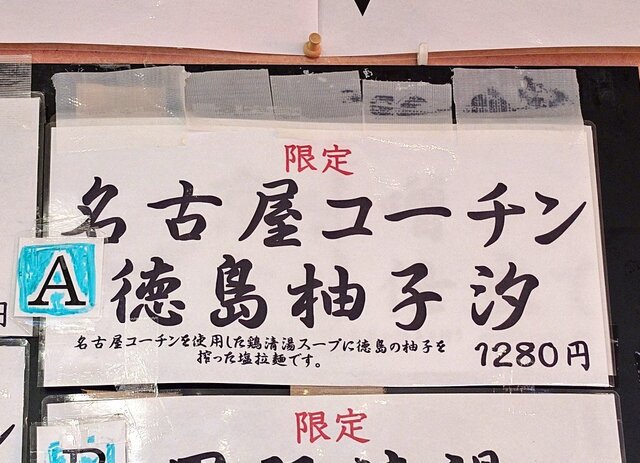 限定
名古屋コーチン
A 徳島柚子汐
名古屋コーチンを使用した鶏清湯スープに徳島の柚子を
搾った塩拉麺です。
1280円
円
限定